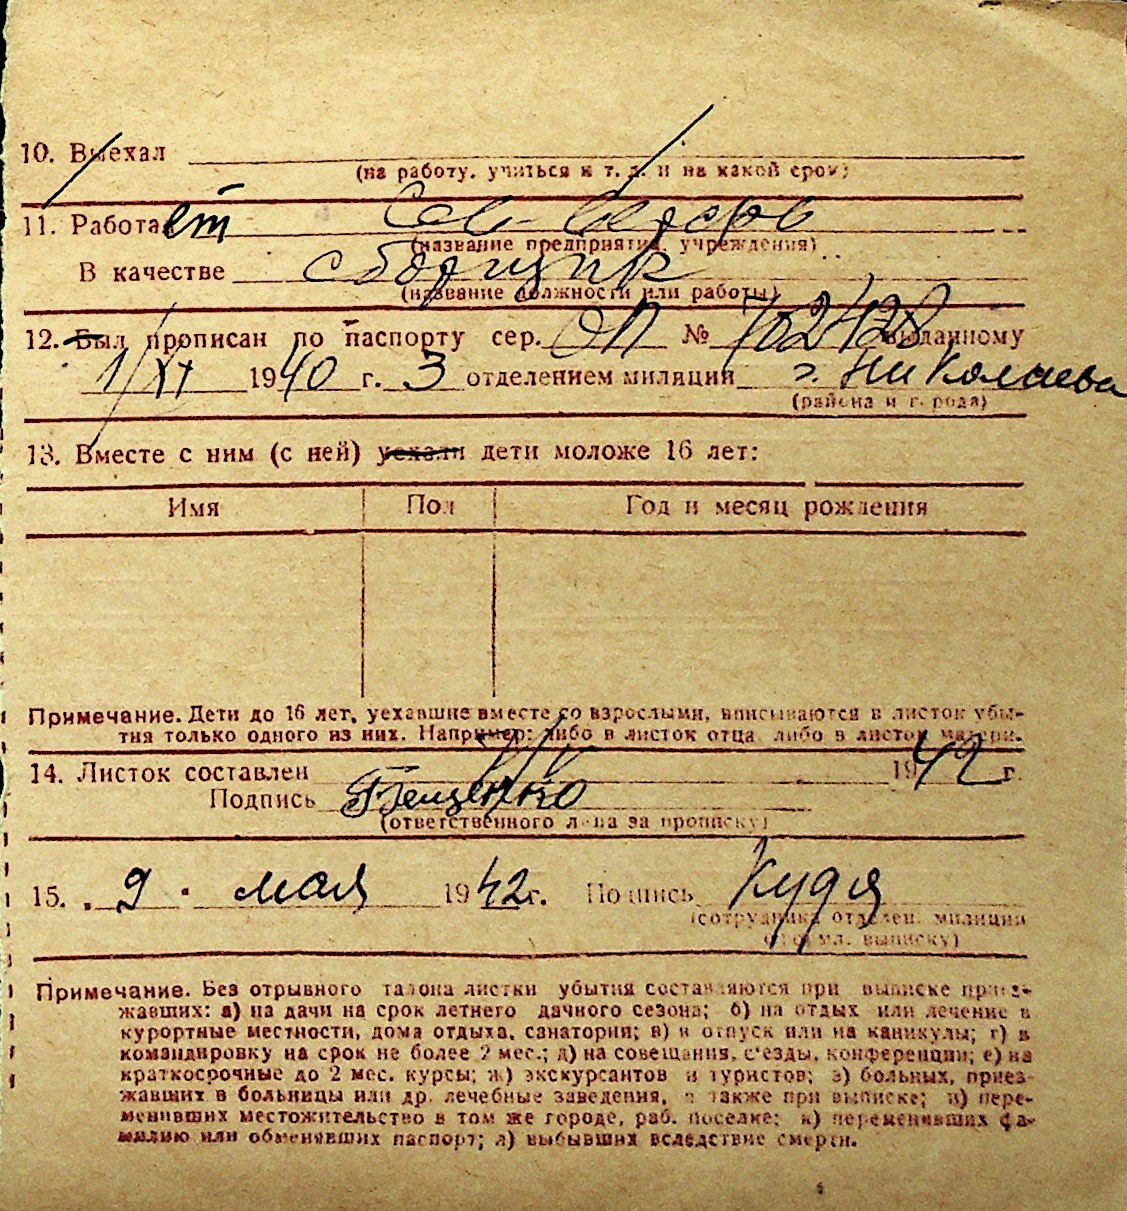 10. Выехал
(на работу, учиться и т. д. и на какой срок)
11. Работает
(название предприятия, учреждения)
В качестве сборщик
(название должности или работы)
12. Был прописан по паспорту сер. ОП № 702428 выданному
1/XI 1940 г. 3 отделением милиции г. Николаева
(района и города)
13. Вместе с ним (с ней) уехали дети моложе 16 лет:
Имя Пол Год и месяц рождения
Примечание. Дети до 16 лет, уехавшие вместе со взрослыми, вписываются в листок убы-
тия только одного из них. Например: либо в листок отца либо в листок матери.
14. Листок составлен 1942 г.
Подпись
(ответственного лица за прописку)
15. 9 мая 1942 г. Подпись
(сотрудника отделен. милиции
оформл. выписку)
Примечание. Без отрывного талона листки убытия составляются при выписке приез-
жавших: а) на дачи на срок летнего дачного сезона; б) на отдых или лечение в
курортные местности, дома отдыха, санатории; в) в отпуск или на каникулы; г) в
командировку на срок не более 2 мес.; д) на совещания, съезды, конференции; е) на
краткосрочные до 2 мес. курсы; ж) экскурсантов и туристов; з) больных, приез-
жавших в больницы или др. лечебные заведения, а также при выписке; и) пере-
менивших местожительство в том же городе, раб. поселке; к) переменивших фа-
милию или обменявших паспорт; л) выбывших вследствие смерти.